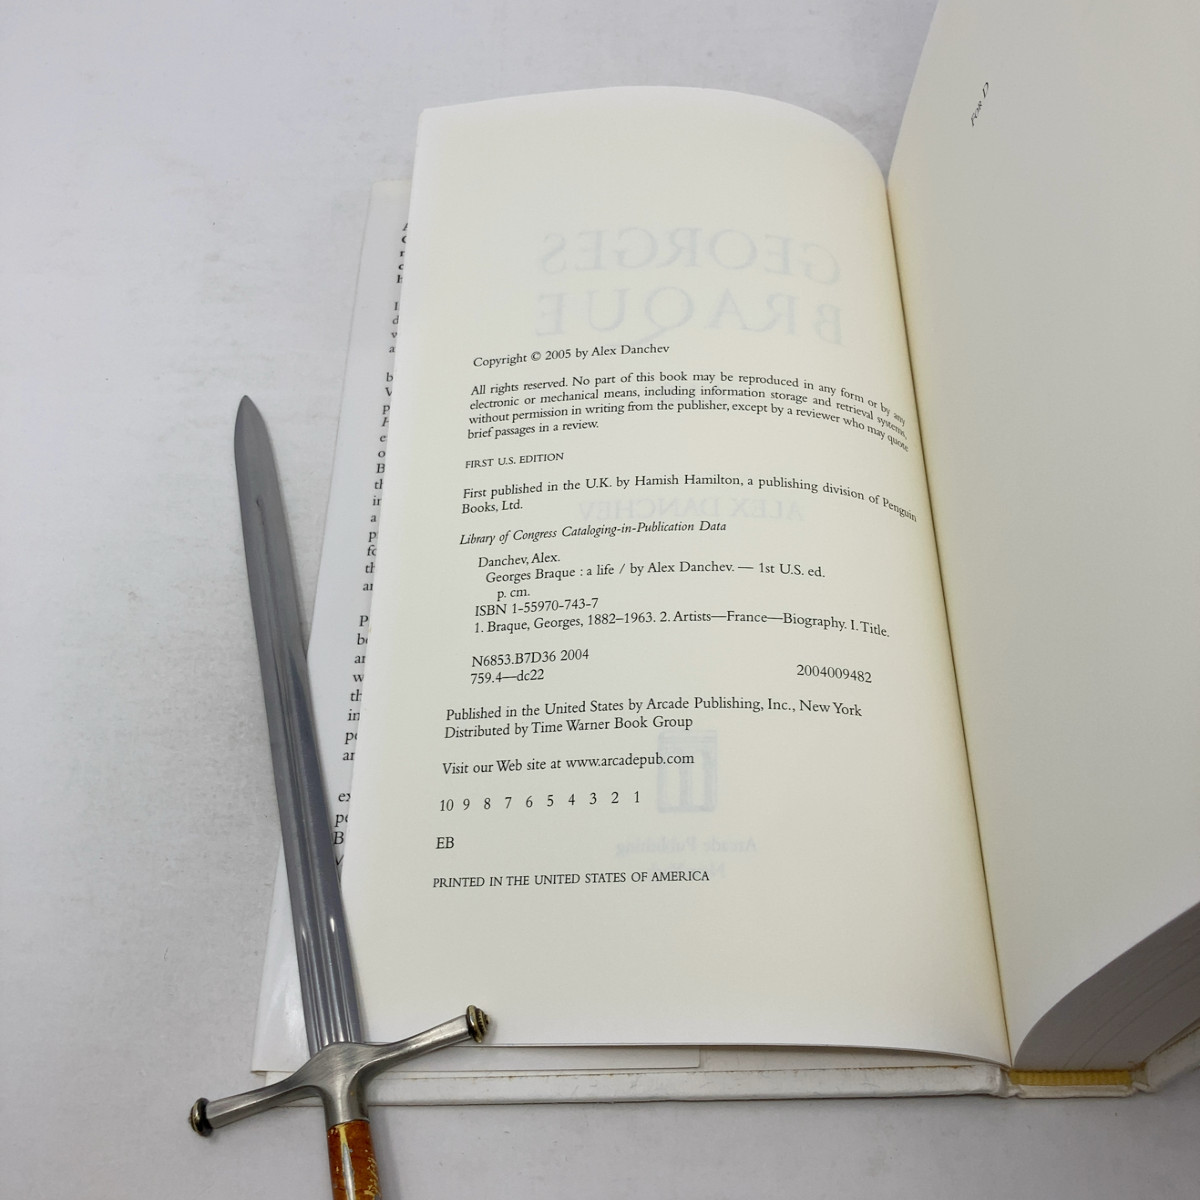 Copyright © 2005 by Alex Danchev
All rights reserved. No part of this book may be reproduced in any form or by any
electronic or mechanical means, including information storage and retrieval systems,
without permission in writing from the publisher, except by a reviewer who may quote
brief passages in a review.
FIRST U.S. EDITION
First published in the U.K. by Hamish Hamilton, a publishing division of Penguin
Books, Ltd.
Library of Congress Cataloging-in-Publication Data
Danchev, Alex.
Georges Braque : a life / by Alex Danchev. — 1st U.S. ed.
p. cm.
ISBN 1-55970-743-7
1. Braque, Georges, 1882–1963. 2. Artists—France—Biography. I. Title.
N6853.B7D36 2004
759.4—dc22 2004009482
Published in the United States by Arcade Publishing, Inc., New York
Distributed by Time Warner Book Group
Visit our Web site at www.arcadepub.com
10 9 8 7 6 5 4 3 2 1
EB
PRINTED IN THE UNITED STATES OF AMERICA
FOR D
GEORGES
BRAQUE
ALEX DANCHEV
Arcade Publishing